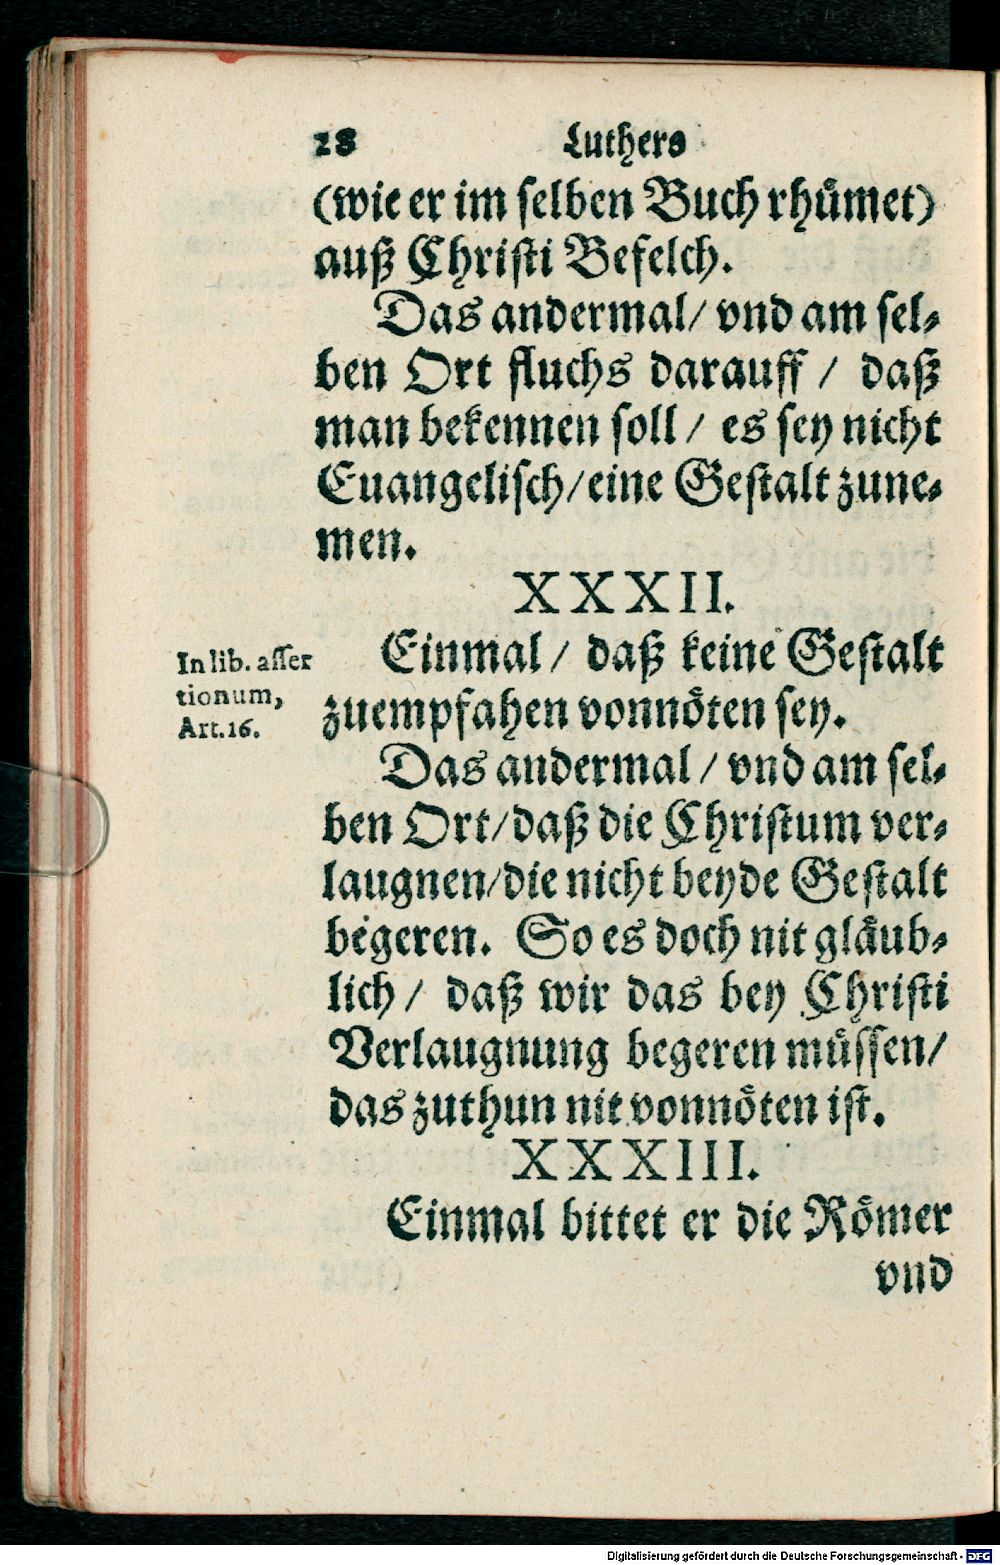 28 Luthers
(wie er im selben Buch rhůmet)
auß Christi Befelch.
Das andermal/ vnd am sel-
ben Ort fluchs darauff / daß
man bekennen soll / es sey nicht
Euangelisch/eine Gestalt zune-
men.
XXXII.
In lib. asser
tionum,
Art.16.
Einmal / daß keine Gestalt
zuempfahen vonnöten sey.
Das andermal / vnd am sel-
ben Ort/daß die Christum ver-
laugnen/die nicht beyde Gestalt
begeren. So es doch nit gläub-
lich / daß wir das bey Christi
Verlaugnung begeren müssen/
das zuthun nit vonnöten ist.
XXXIII.
Einmal bittet er die Römer
vnd
Digitalisierung gefördert durch die Deutsche Forschungsgemeinschaft - DFG